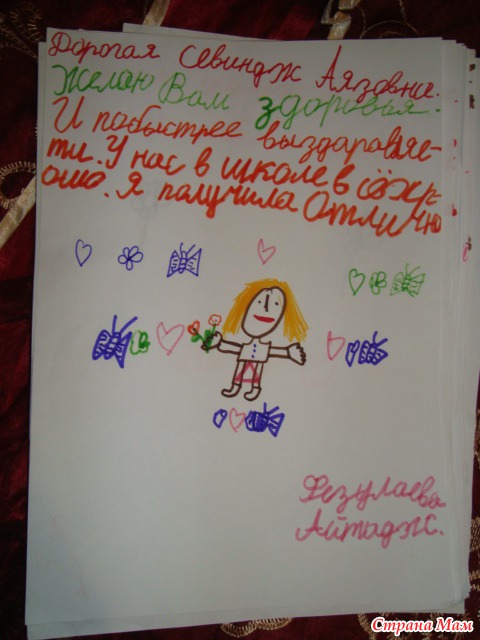 Дорогая Севиндж Аязовна.
Желаю Вам здоровья.
И побыстрее выздаравляе-
ти. У нас в школе всё хор-
ошо. Я палучила Отлично
Фезулаева
Айтадж.
Страна Мам